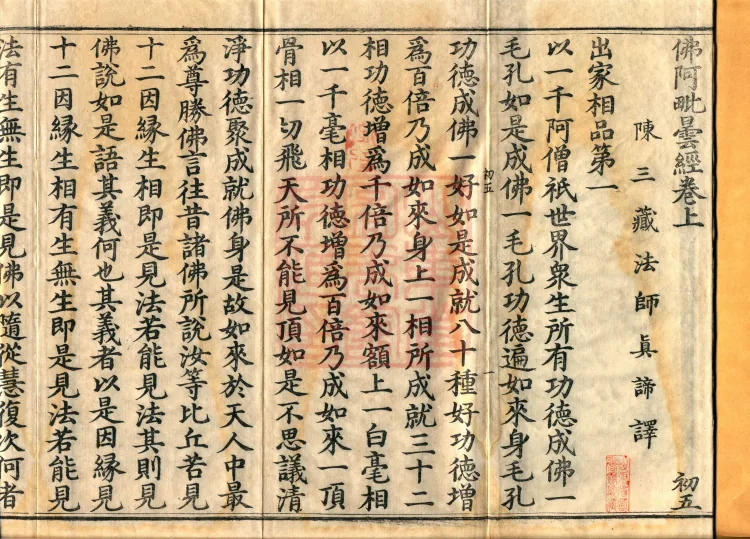 佛阿毗曇經卷上
初五
陳三藏法師真諦譯
出家相品第一
以一千阿僧祇世界衆生所有功德成佛一
毛孔如是成佛一毛孔功德遍如來身毛孔
初五
一
功德成佛一好如是成就八十種好功德增
爲百倍乃成如來身上一相所成就三十二
相功德增爲千倍乃成如來額上一白毫相
以一千毫相功德增爲百倍乃成如來一頂
骨相一切飛天所不能見頂如是不思議清
淨功德聚成就佛身是故如來於天人中最
爲尊勝佛言往昔諸佛所說汝等比丘若見
十二因縁生相即是見法若能見法其則見
佛說如是語其義何也其義者以是因縁見
十二因縁生相有生無生即是見法若能見
法有生無生即是見佛以隨從慧復次何者